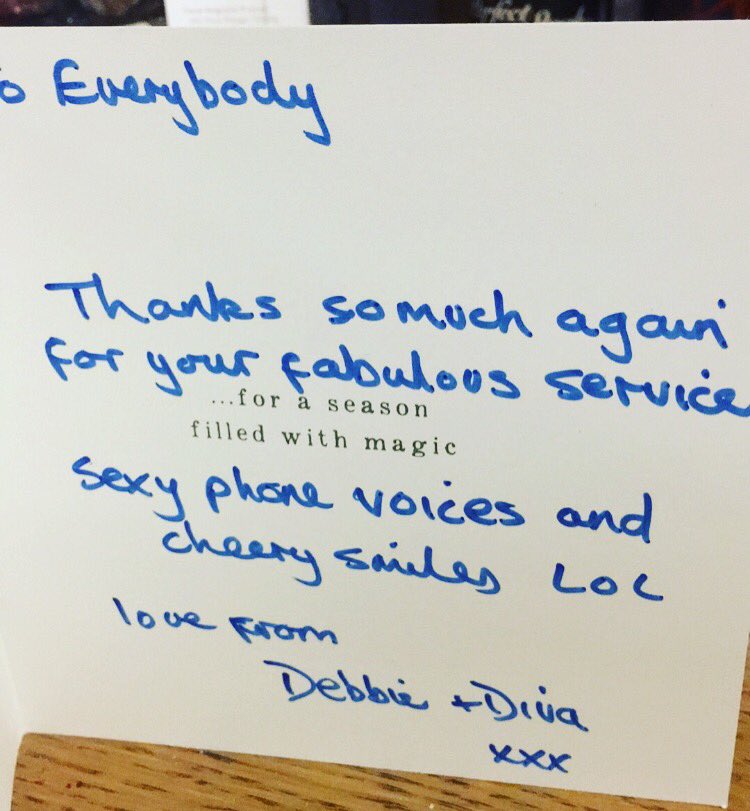 o Everybody
Thanks so much again
for your fabulous service
...for a season
filled with magic
sexy phone voices and
cheery smiles LOL
love from
Debbie + Diva
xxx